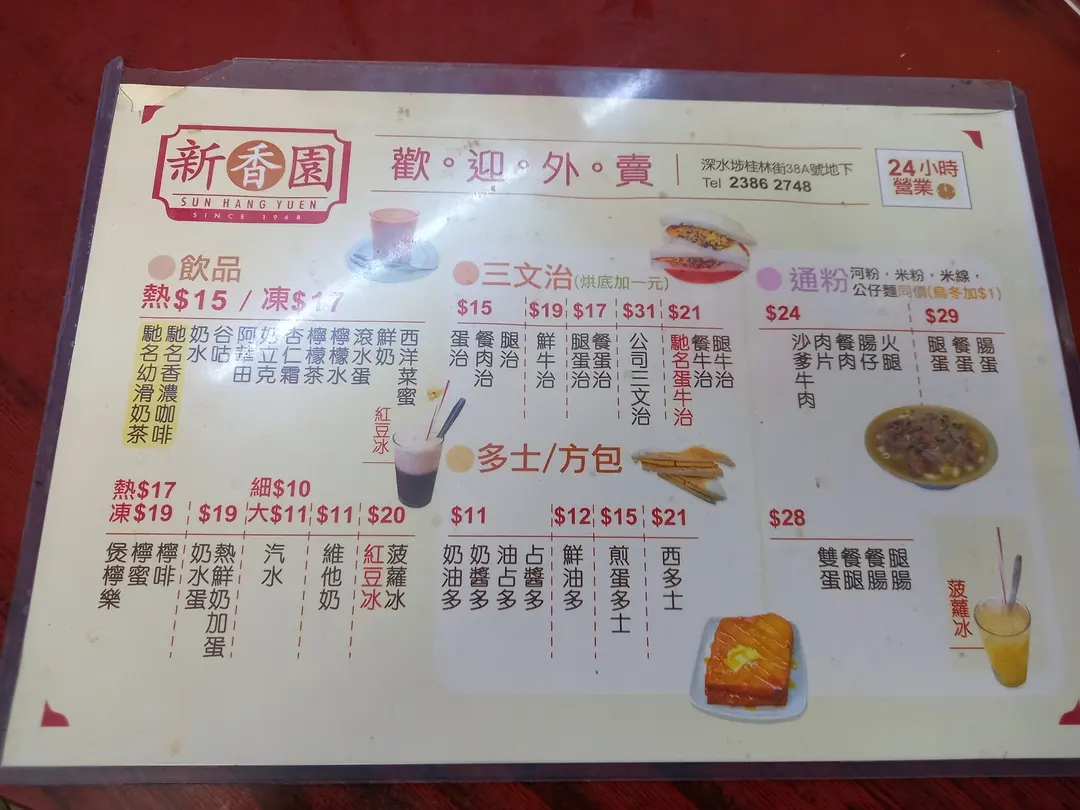 新香園
SUN HANG YUEN
SINCE 1968
歡。迎。外。賣
深水埗桂林街38A號地下
Tel 2386 2748
24小時
營業
飲品
熱$15 / 凍$17
西洋菜蜜
鮮奶
滾水蛋
檸檬水
檸檬茶
杏仁霜
奶立克
阿華田
谷咕
奶水
馳名香濃咖啡
馳名幼滑奶茶
紅豆冰
熱$17
凍$19
檸啡
檸蜜
煲檸樂
$19
熱鮮奶加蛋
奶水蛋
細$10
大$11
汽水
$11
維他奶
$20
菠蘿冰
紅豆冰
三文治(烘底加一元)
$15
腿治
餐肉治
蛋治
$19
鮮牛治
$17
餐蛋治
腿蛋治
$31
公司三文治
$21
腿牛治
餐牛治
馳名蛋牛治
多士/方包
$11
占醬多
油占多
奶醬多
奶油多
$12
鮮油多
$15
煎蛋多士
$21
西多士
通粉
河粉，米粉，米線，
公仔麵同價(烏冬加$1)
$24
火腿
腸仔
餐肉
肉片
沙爹牛肉
$29
腸蛋
餐蛋
腿蛋
$28
腿腸
餐腸
餐腿
雙蛋
菠蘿冰